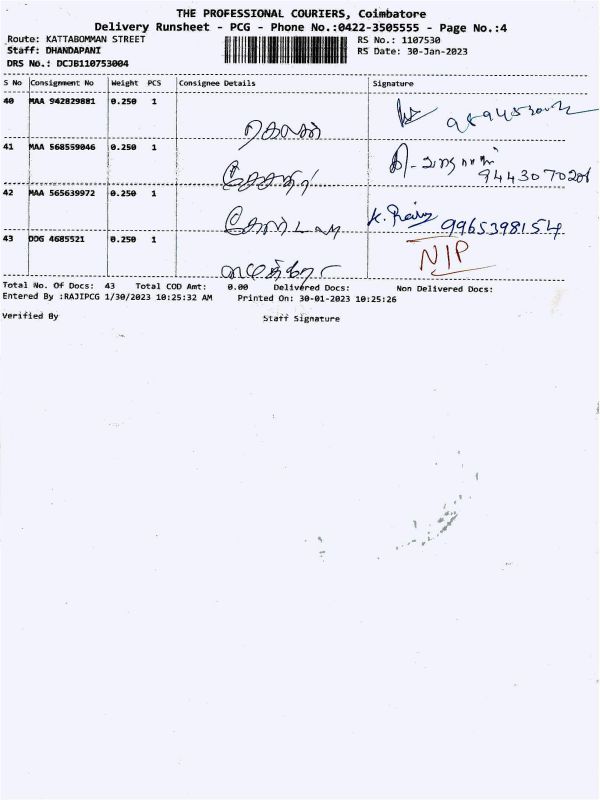 THE PROFESSIONAL COURIERS, Coimbatore
Delivery Runsheet - PCG - Phone No.:0422-3505555 - Page No.:4
Route: KATTABOMMAN STREET RS No.: 1107530
Staff: DHANDAPANI RS Date: 30-Jan-2023
DRS No.: DCJB110753004
S No Consignment No Weight PCS Consignee Details Signature
40 MAA 942829881 0.250 1
41 MAA 568559046 0.250 1
9443070206
42 MAA 565639972 0.250 1 K.
9965398154
43 DOG 4685521 0.250 1 N/P
Total No. Of Docs: 43 Total COD Amt: 0.00 Delivered Docs: Non Delivered Docs:
Entered By :RAJIPCG 1/30/2023 10:25:32 AM Printed On: 30-01-2023 10:25:26
Verified By Staff Signature